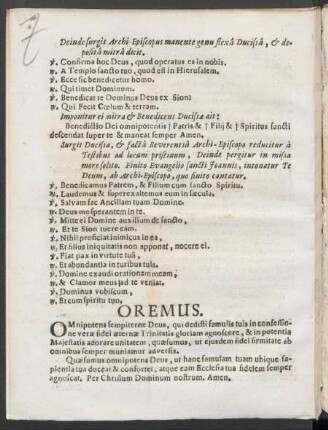 Deinde surgit Archi-Episcopus manente genu flexâ Ducissâ, & de-
positâ mitrâ dicit.
℣. Confirma hoc Deus, quod operatus es in nobis,
℟. A Templo sancto tuo, quod est in Hierusalem.
℣. Ecce sic benedicetur homo.
℟. Qui timet Dominum.
℣. Benedicat te Dominus Deus ex Sion:
℟. Qui Fecit Cœlum & terram.
Imponitur ei mitra & Benedicens Ducissa ait:
Benedictio Dei omnipotentis † Patris & † Filij & † Spiritus sancti
descendat super te & maneat semper Amen.
Surgit Ducissa, & factâ Reverentiâ Archi-Episcopo reducitur à
Testibus ad locum pristinum, Deinde pergitur in missa
more solito. Finito Evangelio sancti Joannis, intonatur Te
Deum, ab Archi-Episcopo, quo finito cantatur.
℣. Benedicamus Patrem, & Filium cum sancto Spiritu.
℟. Laudemus & superexaltemus eum in sæcula.
℣. Salvam fac Ancillam tuam Domine.
℟. Deus me sperantem in te.
℣. Mitte ei Domine auxilium de sancto,
℟. Et te Sion tuere eam.
℣. Nihil proficiat inimicus in ea,
℟. Et filius iniquitatis non apponat, nocere ei.
℣. Fiat pax in virtute tuâ,
℟. Et abundantia in turibus tuis.
℣. Domine exaudi orationem meam,
℟. & Clamor meus ad te veniat.
℣. Dominus vobiscum,
℟. Et cum spiritu tuo,
OREMUS.
OMnipotens sempiterne Deus, qui dedisti famulis tuis in confessio-
ne veræ fidei æternæ Trinitatis gloriam agnoscere, & in potentia
Majestatis adorare unitatem, quæsumus, ut ejusdem fidei firmitate ab
omnibus semper muniamur adversis.
Quæsumus omnipotens Deus, ut hanc famulam tuam ubique sa-
pientia tua doceat & confortet, atque eam Ecclesia tua fidelem semper
agnoscat. Per Christum Dominum nostrum, Amen.